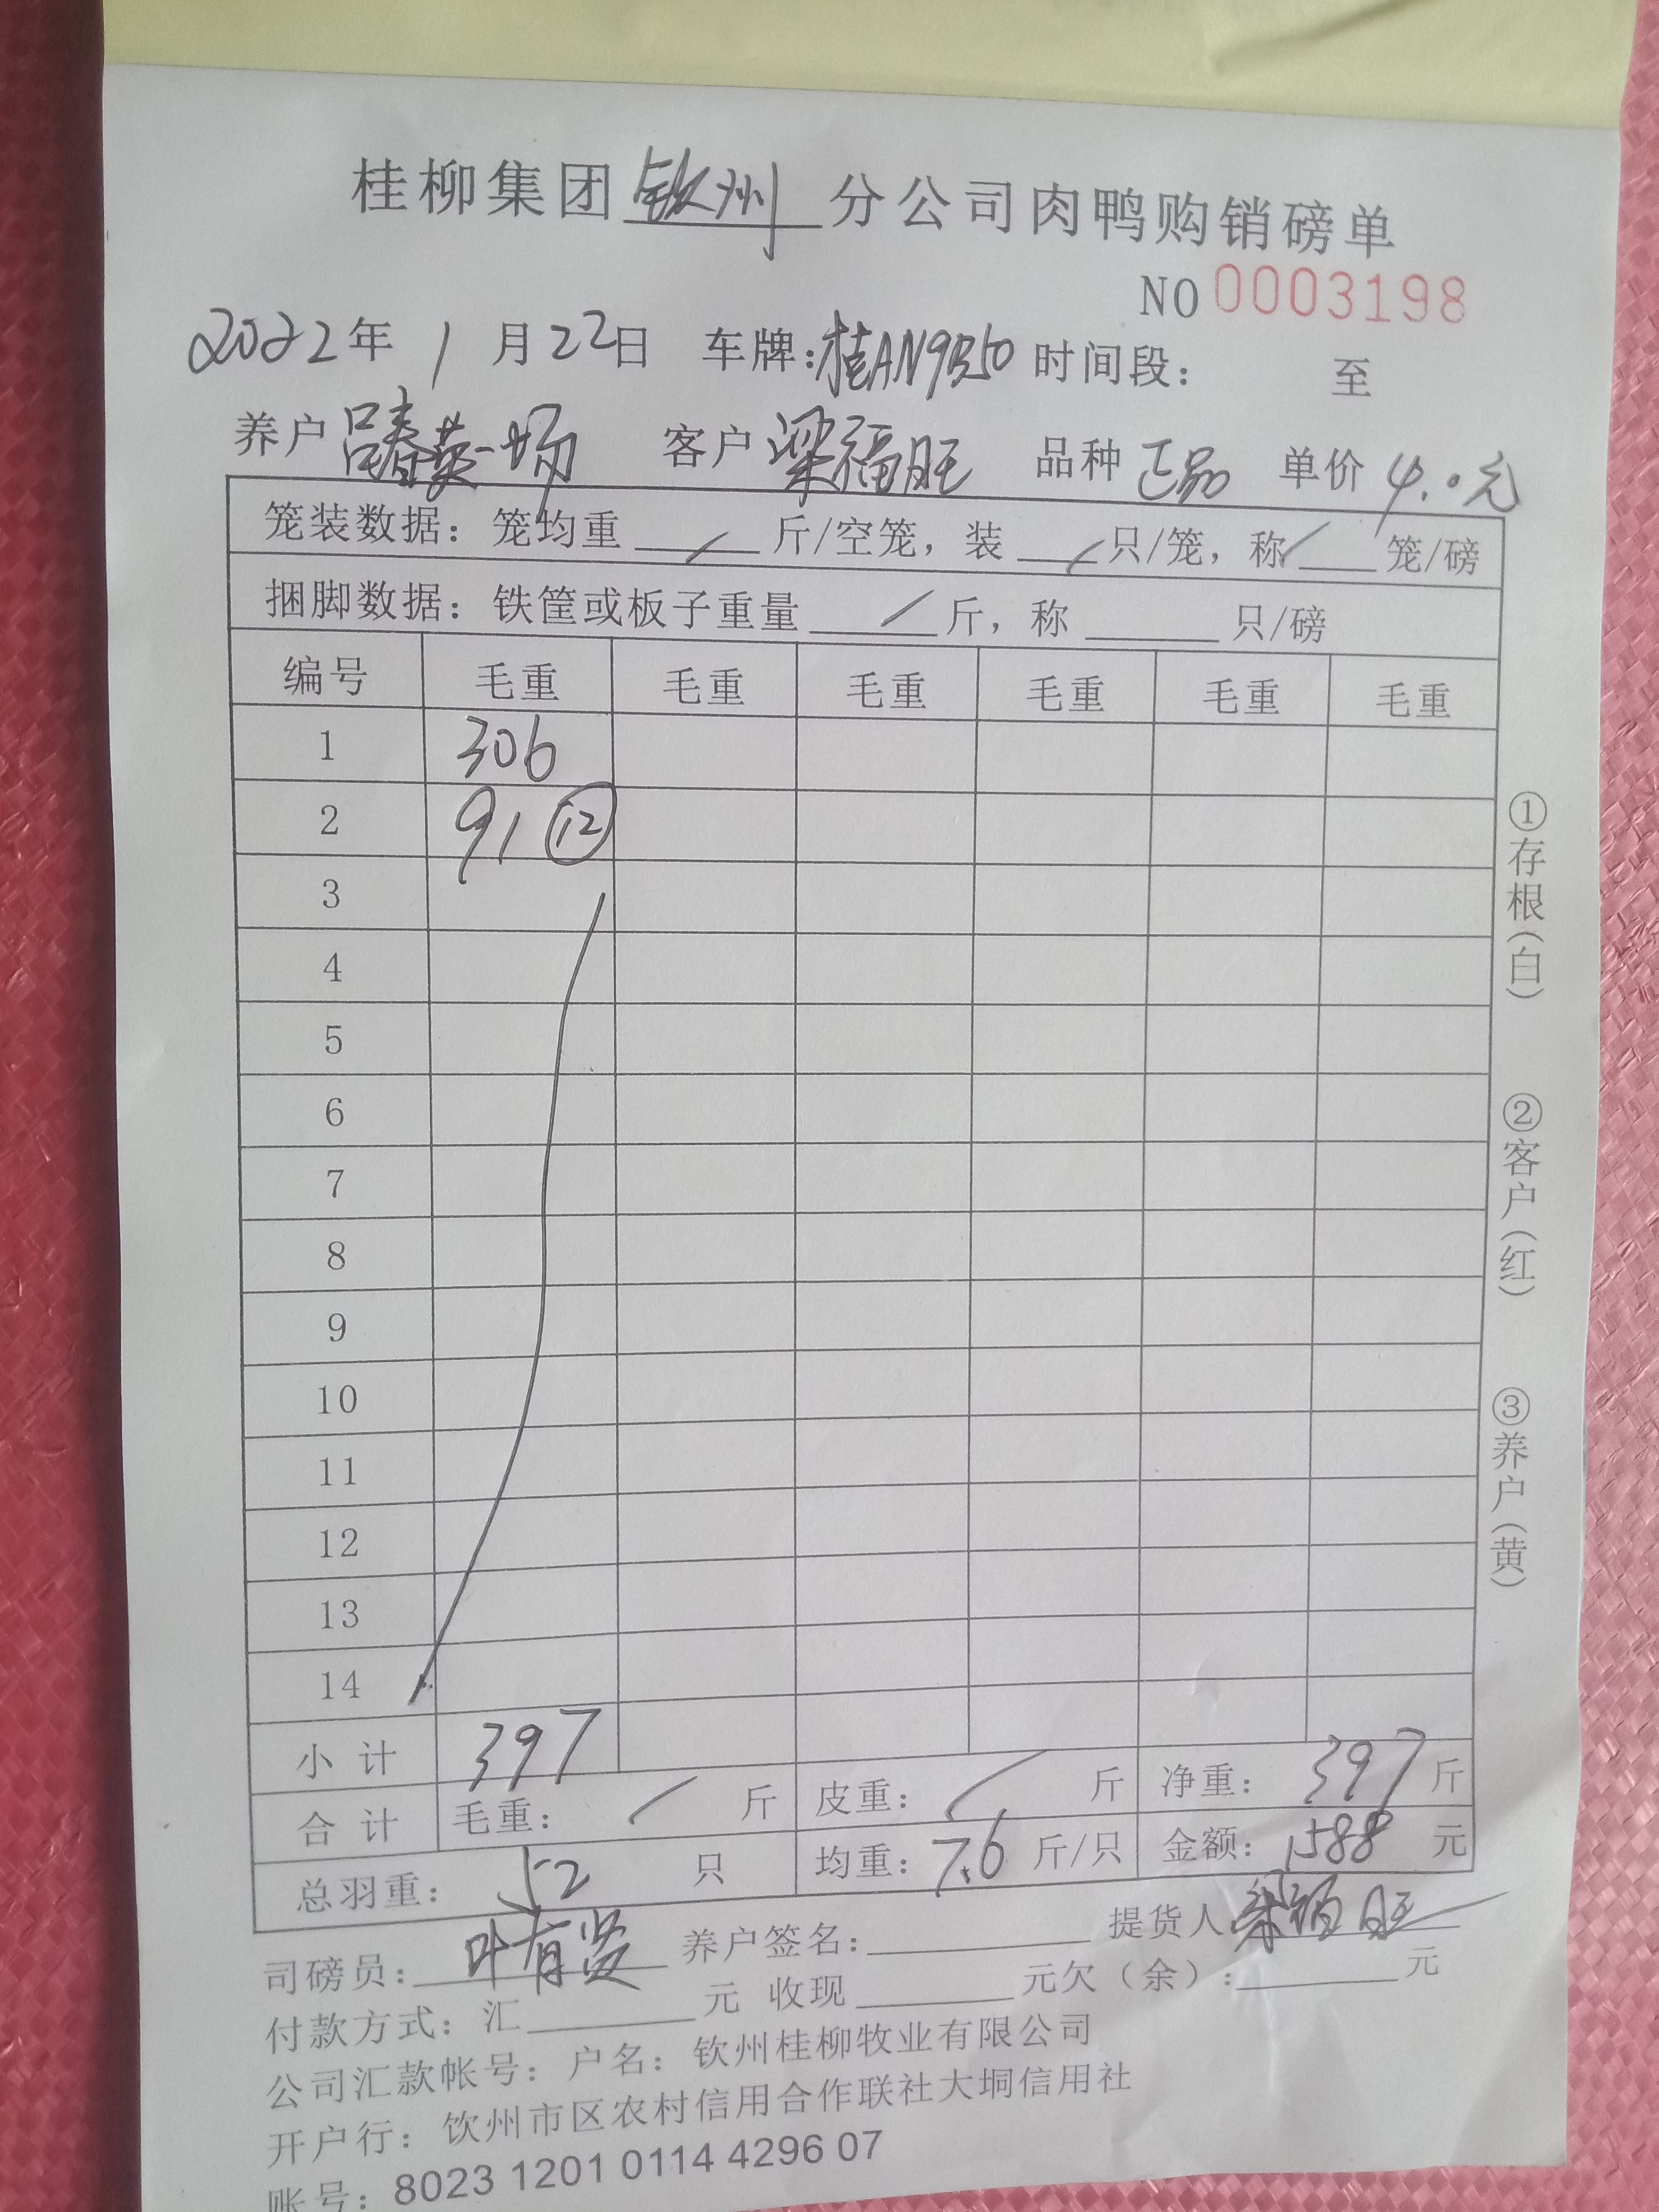 桂柳集团钦州分公司肉鸭购销磅单
NO 0003198
2022年1月22日 车牌:桂AN9B50 时间段: 至
养户 吕春英一场 客户 梁福旺 品种 正品 单价 4.0元
笼装数据: 笼均重 / 斤/空笼, 装 / 只/笼, 称 / 笼/磅
捆脚数据: 铁筐或板子重量 / 斤, 称 只/磅
编号 毛重 毛重 毛重 毛重 毛重 毛重
1 306
2 91 ⑫
3
4
5
6
7
8
9
10
11
12
13
14
小计 397
合计 毛重: / 斤 皮重: / 斤 净重: 397 斤
总羽重: 52 只 均重: 7.6 斤/只 金额: 1588 元
司磅员: 叶有贤 养户签名: 提货人 梁福旺
付款方式: 汇 元 收现 元欠(余): 元
公司汇款帐号: 户名: 钦州桂柳牧业有限公司
开户行: 钦州市区农村信用合作联社大垌信用社
账号: 8023 1201 0114 4296 07
①存根(白) ②客户(红) ③养户(黄)